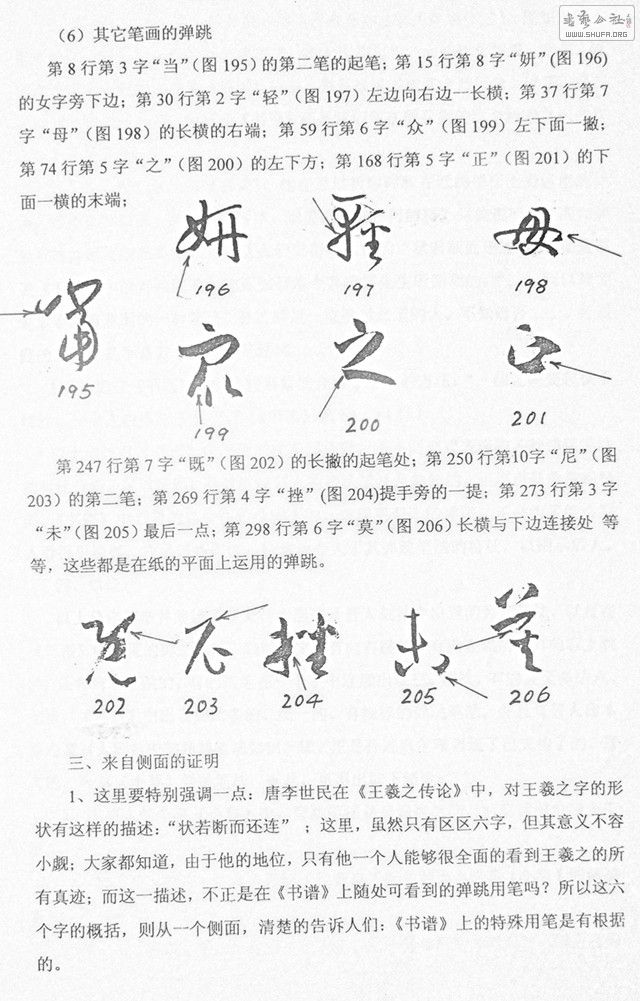 書藝公社
WWW.SHUFA.ORG
（6）其它笔画的弹跳
第 8 行第 3 字“当”（图 195）的第二笔的起笔；第 15 行第 8 字“妍”(图 196)
的女字旁下边；第 30 行第 2 字“轻”（图 197）左边向右边一长横；第 37 行第 7
字“母”（图 198）的长横的右端；第 59 行第 6 字“众”（图 199）左下面一撇；
第 74 行第 5 字“之”（图 200）的左下方；第 168 行第 5 字“正”（图 201）的下
面一横的末端；
196
197
198
195
199
200
201
第 247 行第 7 字“既”（图 202）的长撇的起笔处；第 250 行第10字“尼”（图
203）的第二笔；第 269 行第 4 字“挫”(图 204)提手旁的一提；第 273 行第 3 字
“未”（图 205）最后一点；第 298 行第 6 字“莫”（图 206）长横与下边连接处 等
等，这些都是在纸的平面上运用的弹跳。
202
203
204
205
206
三、来自侧面的证明
1、这里要特别强调一点：唐李世民在《王羲之传论》中，对王羲之字的形
状有这样的描述：“状若断而还连” ；这里，虽然只有区区六字，但其意义不容
小觑；大家都知道，由于他的地位，只有他一个人能够很全面的看到王羲之的所
有真迹；而这一描述，不正是在《书谱》上随处可看到的弹跳用笔吗？所以这六
个字的概括，则从一个侧面，清楚的告诉人们：《书谱》上的特殊用笔是有根据
的。